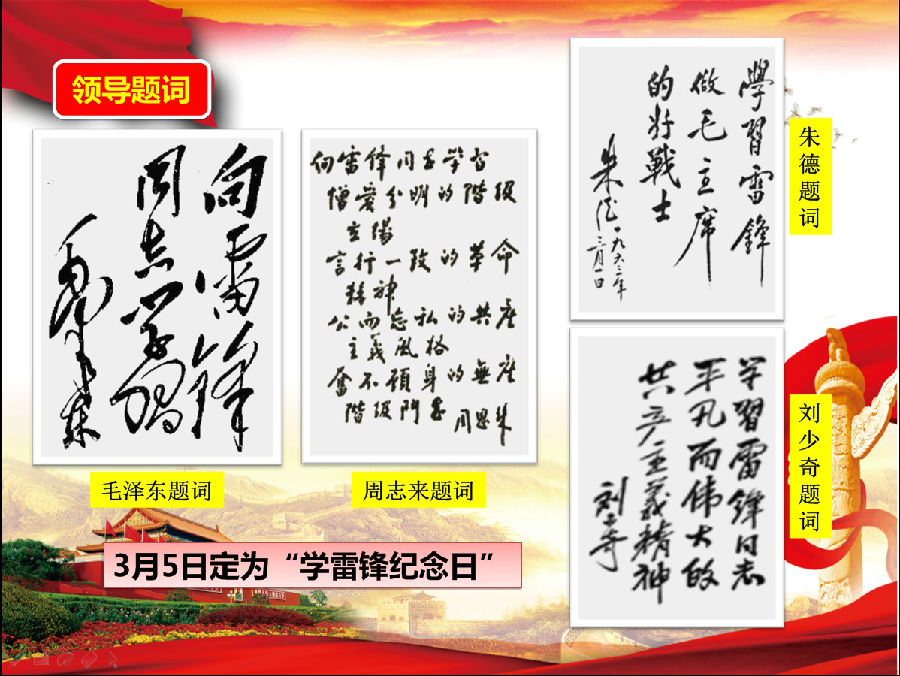 领导题词
向雷锋
同志学習
毛泽东
毛泽东题词
向雷锋同志学習
憎爱分明的階級
立場
言行一致的革命
精神
公而忘私的共産
主義風格
奮不顧身的無産
階級鬥志
周恩来
周志来题词
學習雷鋒
做毛主席
的好戰士
朱德
一九六三年
朱德题词
学習雷锋同志
平凡而伟大的
共产主義精神
刘少奇
刘少奇题词
3月5日定为“学雷锋纪念日”